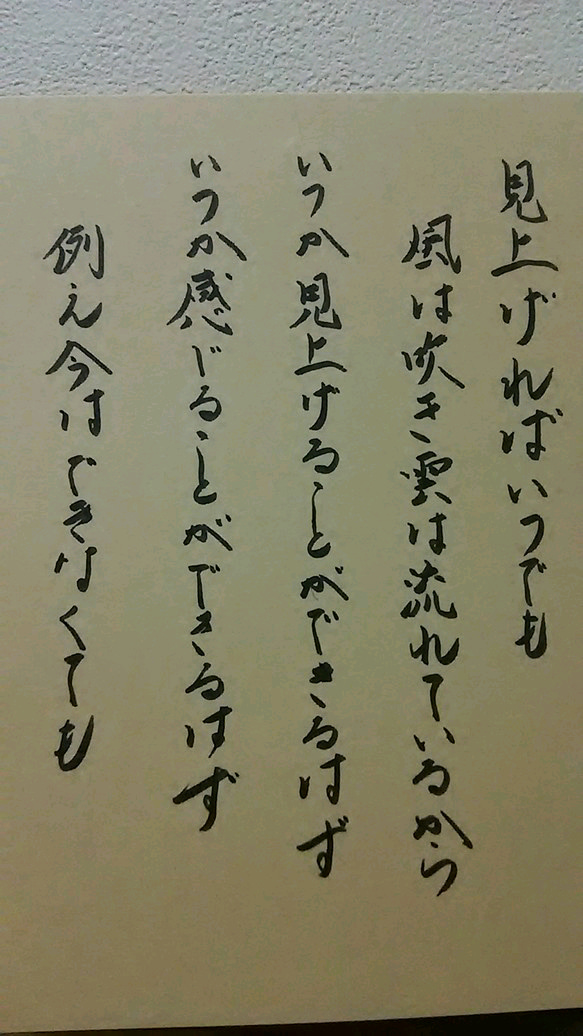 見上げればいつでも
風は吹き雲は流れているから
いつか見上げることができるはず
いつか感じることができるはず
例え今はできなくても